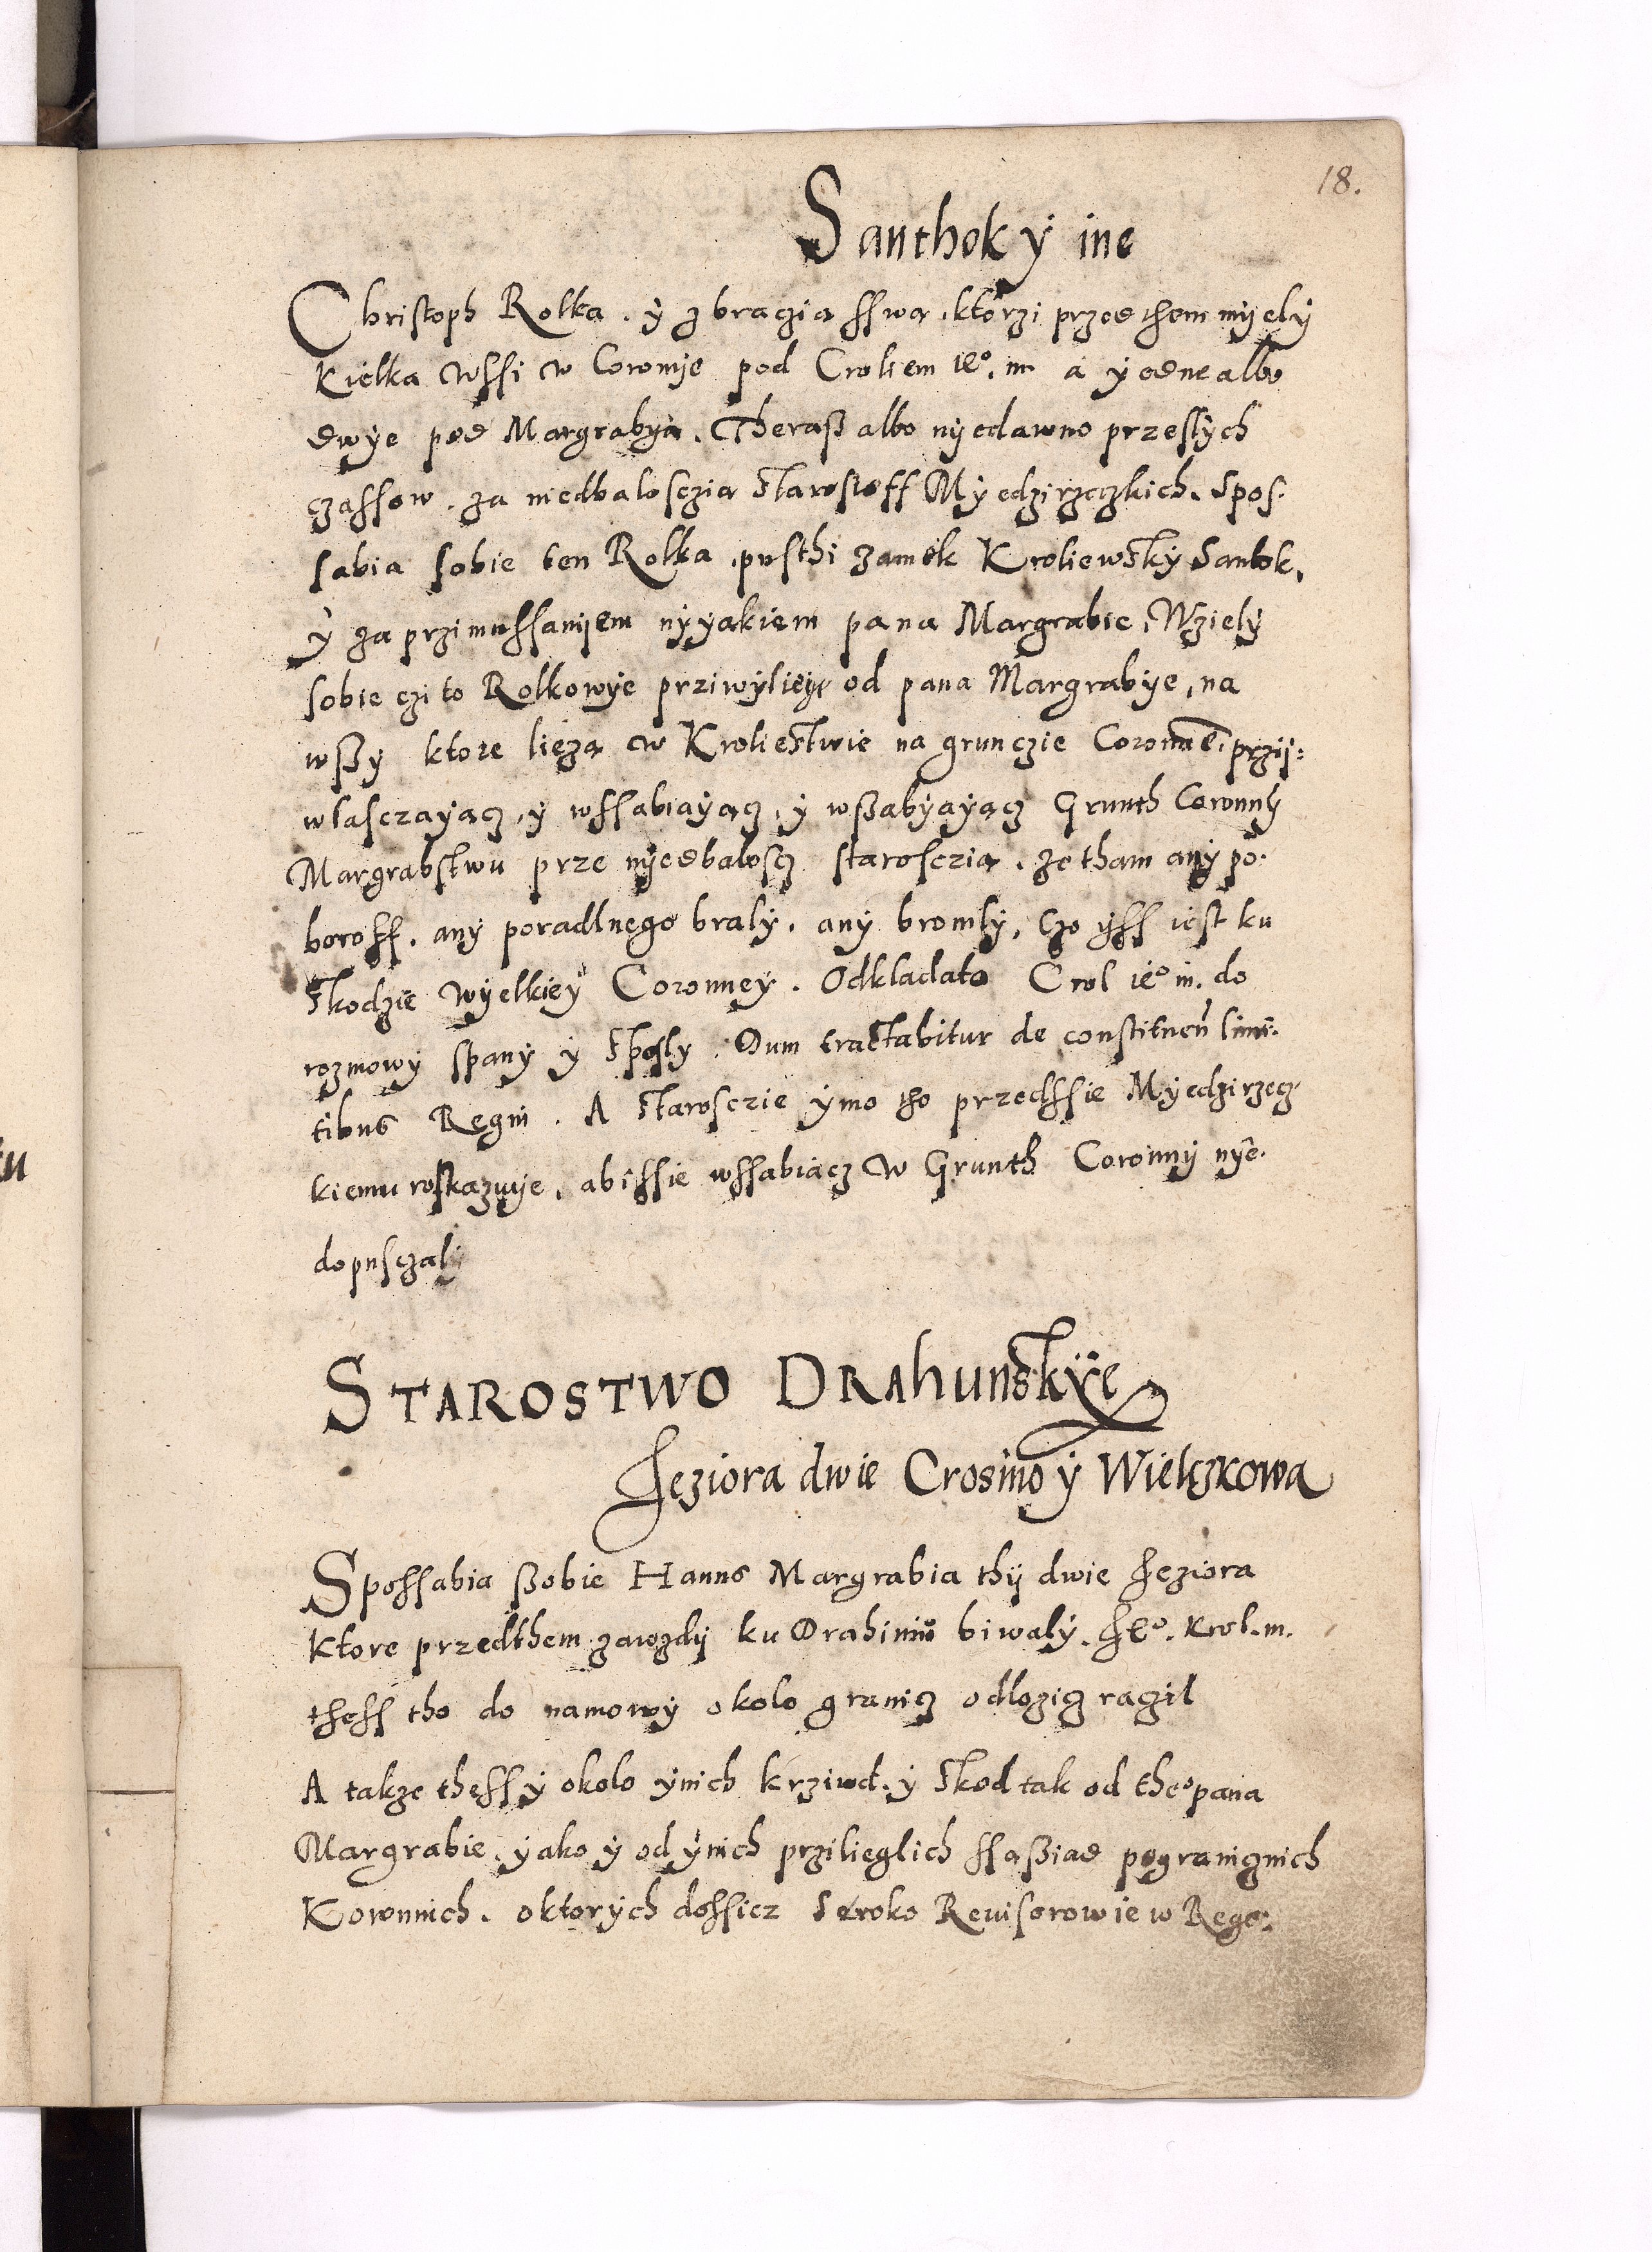 18.
Santhok ÿ ine
Christoph Rolka. ÿ z braczia sswa. ktorzi przedthem mÿelÿ
Kielka wssi w Coronÿe pod Croliem ieo. m. a ÿedne albo
dwÿe pod Margrabÿa. Theraß albo nÿedawno przeslÿch
czassow. za niedbalosczia Starostoff Mÿedzirzeczkich. Spos.
sabia sobie ten Rolka. pusthi zamek Kroliewskÿ Santok.
ÿ za przimussanÿem nÿyakiem pana Margrabie, Wzielÿ
sobie czi to Rolkowÿe prziwÿlieÿe od pana Margrabÿe, na
wßÿ ktore lieza w Kroliestwie na grunczie Coronnē. przÿ:
wlasczaÿacz, ÿ wssabiaÿacz, ÿ wßabÿaÿacz Grunth Coronnÿ
Margrabstwu prze nÿedbaloscz starosczia. ze tham anÿ po.
boroff. anÿ poradlnego bralÿ. anÿ bronilÿ, czo ÿss iest ku
Skodzie Wÿelkieÿ Coronneÿ. Odklada to Crol ieo m. do
rozmowÿ spanÿ ÿ Sposlÿ. Dum tractabitur de constituen̄ limi.
tibus Regni. A Starosczie ÿmo tho przedssie Mÿedzirzecz.
kiemu roskazuÿe, abissie wssabiacz w Grunth Coronnÿ nÿe.
dopusczalÿ
STAROSTWO DRAhunskÿe
Jeziora dwie Crosino ÿ Wielczkowa
Spossabia ßobie Hanns Margrabia thÿ dwie Jeziora
Ktore przedthem zawzdÿ ku Drahimiu biwalÿ. Jeo. Krol. m.
thess tho do namowÿ okolo granicz odlozicz raczil
A takze thess ÿ okolo ÿnich krziwd. ÿ Skod tak od theo pana
Margrabie. ÿako ÿ od ÿnich przilieglich ssaßiad pogranicznich
Koronnich. oktorÿch dossicz Seroko Reuisorowie w Rege: